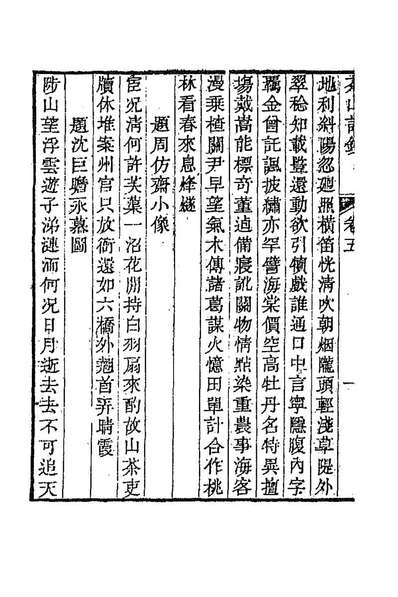 山詩錄 卷五 一
地利斜陽忽廻照橫笛恍清吹朝烟隴頭輕淺草隄外
翠知載登還動欲引犢戲誰通口中言寧隱腹內字
羈金曾託諷披繡亦罕譬海棠價空高牡丹名特異
塲戴嵩能標奇董逌備寢訛關物情點染重農事海客
漫乘槎關尹早望氣木傳諸葛謀火憶田單計合作桃
林看春來息烽燧
題周仿齋小像
宦況清何許芙葉一沼花閒持白羽扇來酌故山茶吏
牘休堆案州官只放衙還如六橋外翹首弄晴霞
題沈巨瞻永慕圖
陟山望浮雲遊子涕漣洏何況日月逝去去不可追天